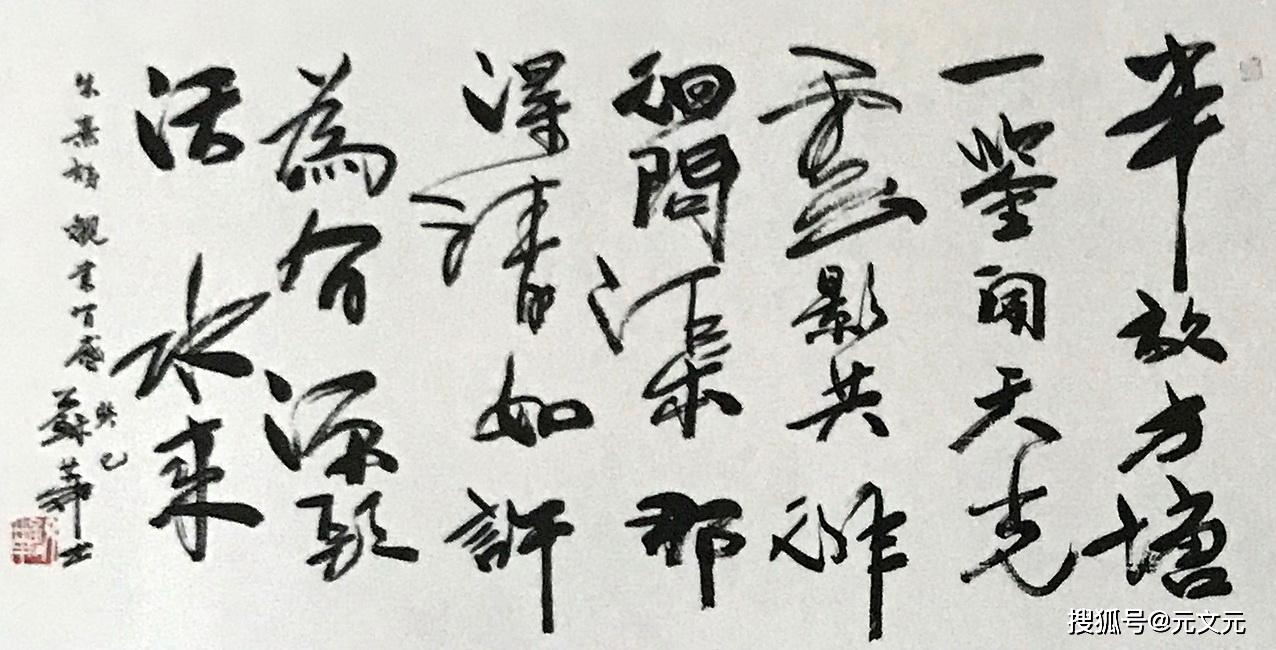 半畝方塘
一鉴開天光
雲影共徘
徊問渠那
得清如許
為有源頭
活水来
朱熹詩觀書有感
癸巳
蘇
搜狐号@元文元